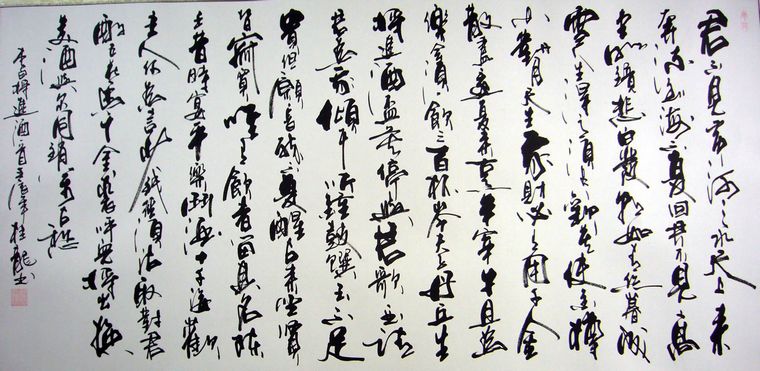 君不見黃河之水天上來
奔流到海不復回君不見高
堂明鏡悲白髮朝如青絲暮成
雪人生得意須盡歡莫使金樽
空對月天生我材必有用千金
散盡還復來烹羊宰牛且為
樂會須飲三百杯岑夫子丹丘生
將進酒杯莫停與君歌一曲請
君為我傾耳聽鐘鼓饌玉不足
貴但願長醉不復醒古來聖賢
皆寂寞唯有飲者留其名陳
王昔時宴平樂斗酒十千恣歡
主人何為言少錢徑須沽取對君
酌五花馬千金裘呼兒將出換
美酒與爾同銷萬古愁
李白將進酒 桂龍書